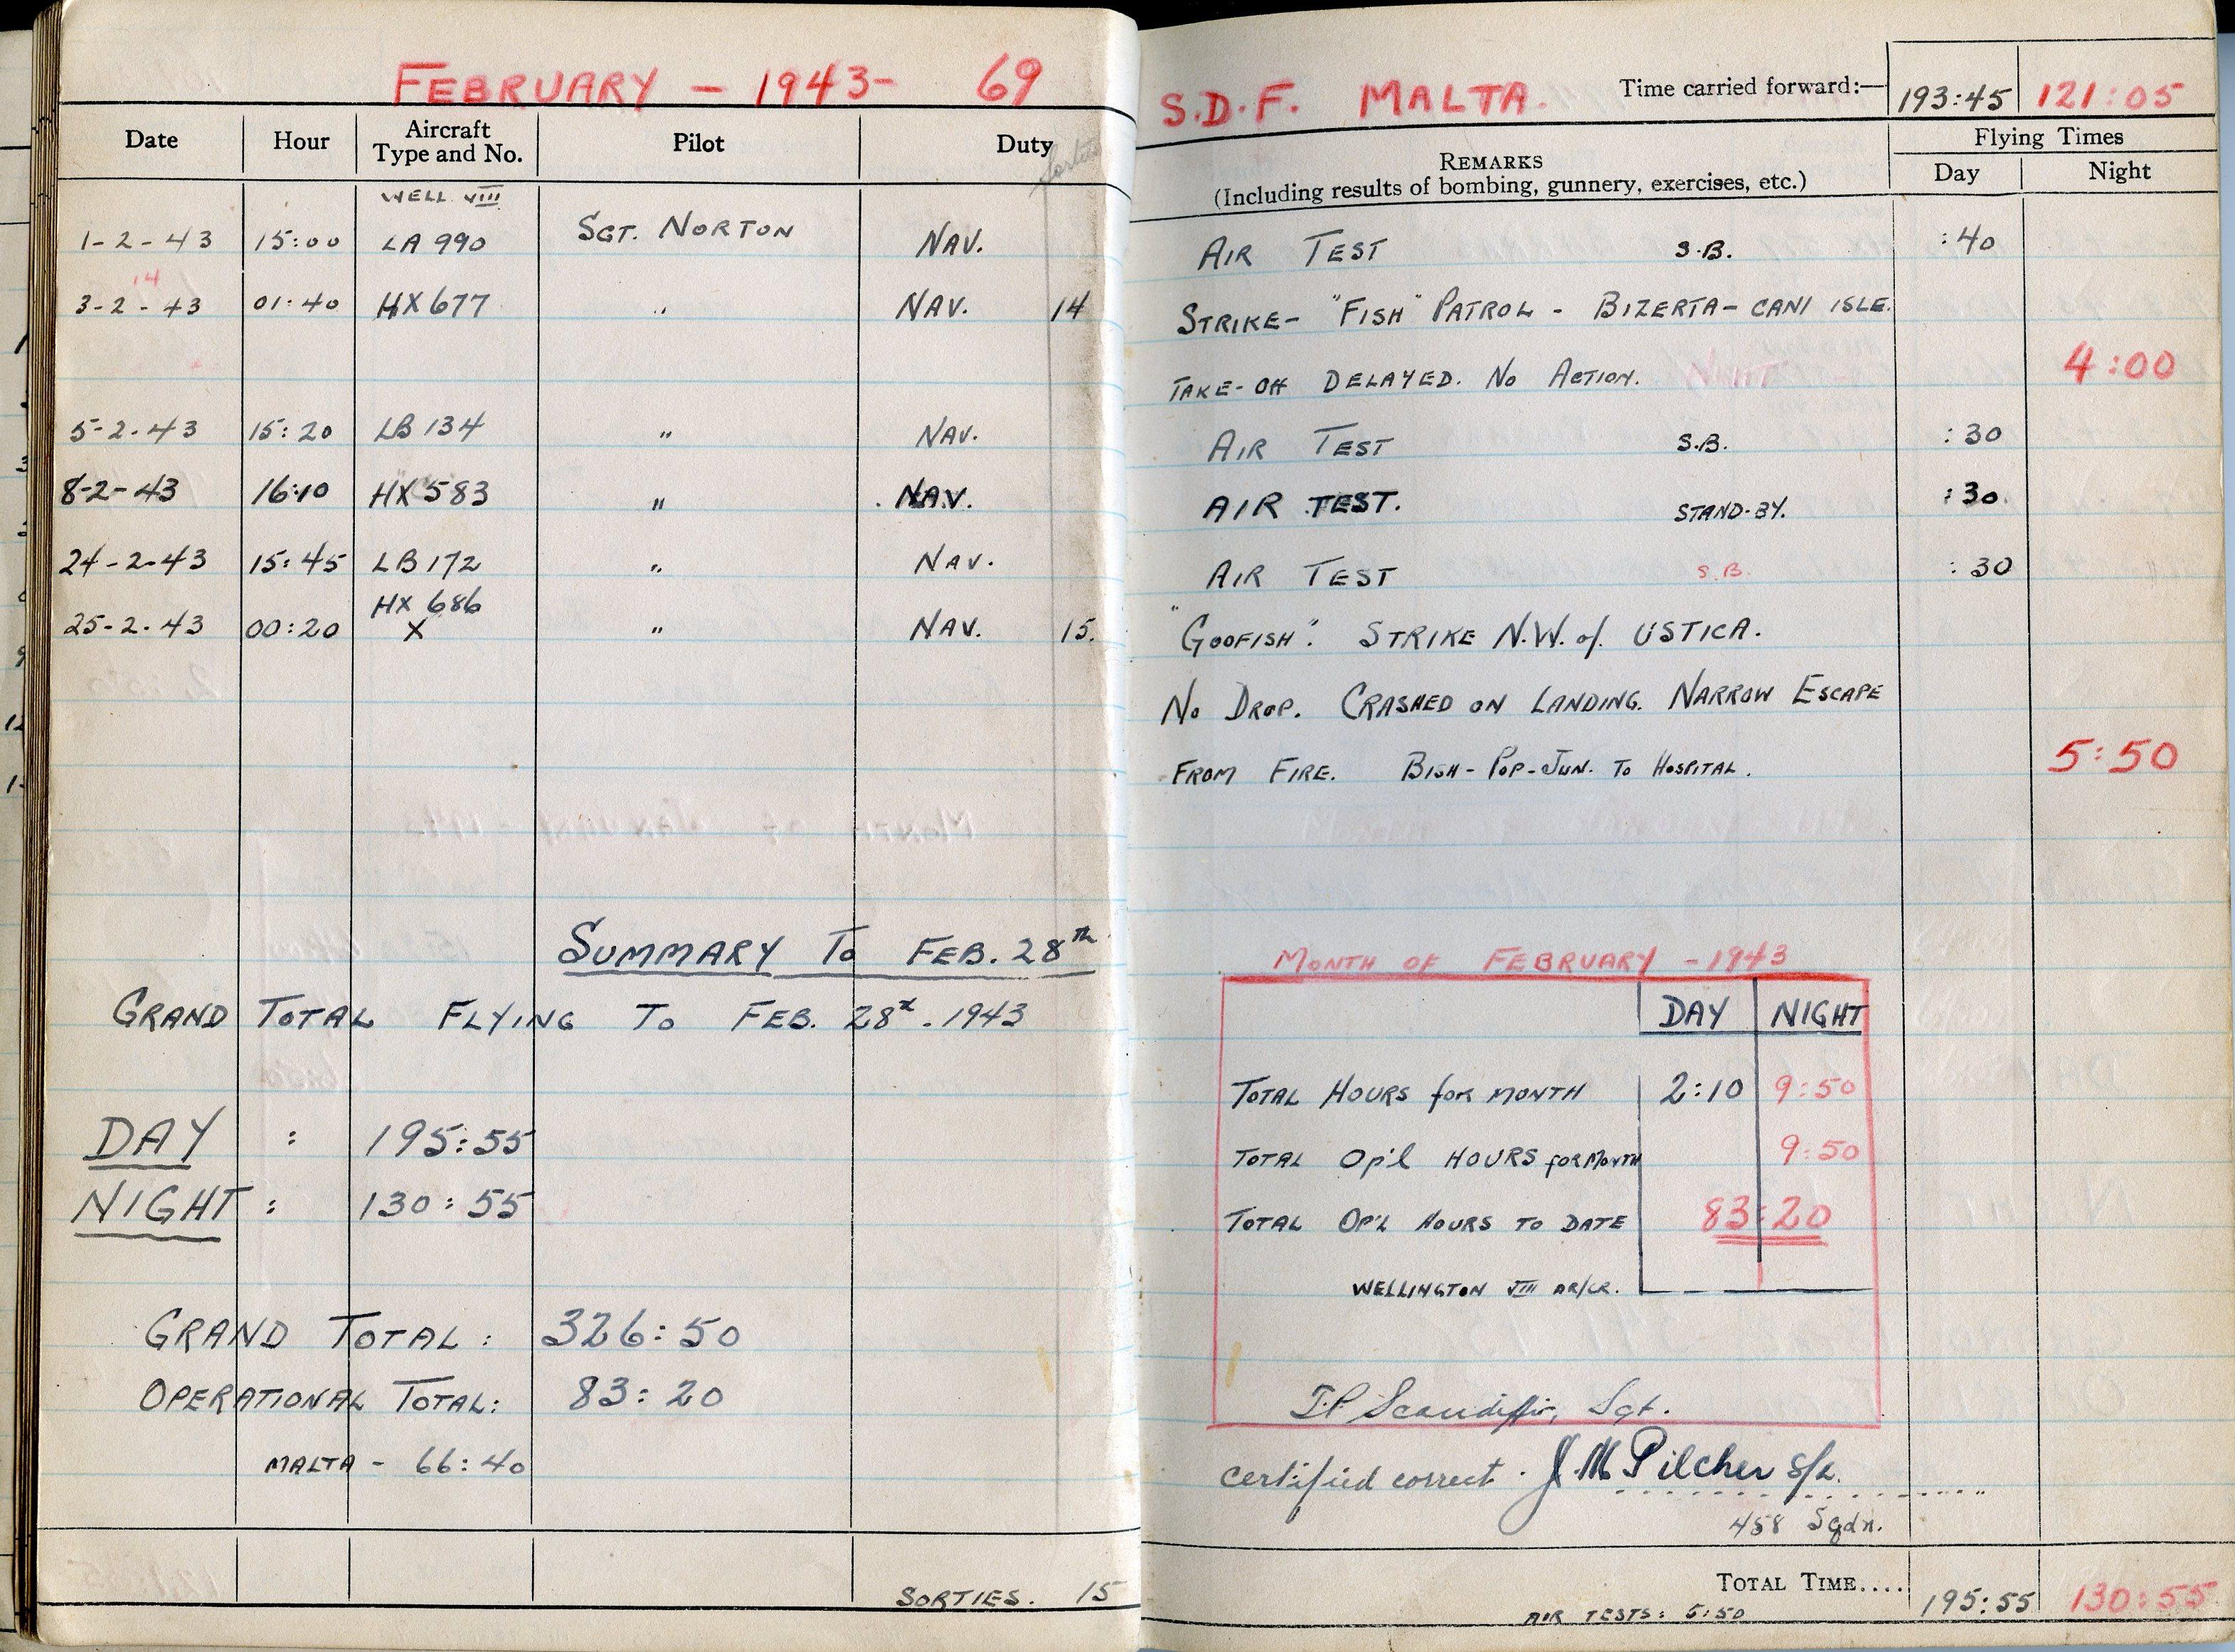 FEBRUARY - 1943- 69
Date Hour Aircraft Type and No. Pilot Duty
Sorties
WELL VIII
1-2-43 15:00 LA 990 SGT. NORTON NAV.
14
3-2-43 01:40 HX 677 " NAV. 14
5-2-43 15:20 LB 134 " NAV.
8-2-43 16:10 HX 583 " NAV.
24-2-43 15:45 LB 172 " NAV.
HX 686
25-2-43 00:20 X " NAV. 15.
SUMMARY TO FEB. 28th
GRAND TOTAL FLYING TO FEB. 28th. 1943
DAY : 195:55
NIGHT : 130:55
GRAND TOTAL: 326:50
OPERATIONAL TOTAL: 83:20
MALTA - 66:40
SORTIES. 15
S.D.F. MALTA. Time carried forward:— 193:45 121:05
REMARKS
(Including results of bombing, gunnery, exercises, etc.)
Flying Times
Day Night
AIR TEST S.B. :40
STRIKE- "FISH" PATROL - BIZERTA - CANI ISLE.
TAKE-OFF DELAYED. NO ACTION. 4:00
AIR TEST S.B. :30
AIR TEST. STAND-BY. :30.
AIR TEST S.B. :30
"GOOFISH". STRIKE N.W. of USTICA.
NO DROP. CRASHED ON LANDING. NARROW ESCAPE
FROM FIRE. BISH - POP - JUN. TO HOSPITAL. 5:50
MONTH OF FEBRUARY - 1943
DAY NIGHT
TOTAL HOURS for MONTH 2:10 9:50
TOTAL Op'l HOURS for MONTH 9:50
TOTAL OP'L HOURS TO DATE 83:20
WELLINGTON VIII AR/CR.
Sgt.
certified correct. J.M Pilcher S/L.
458 Sqdn.
TOTAL TIME.... 195:55 130:55
AIR TESTS: 5:50